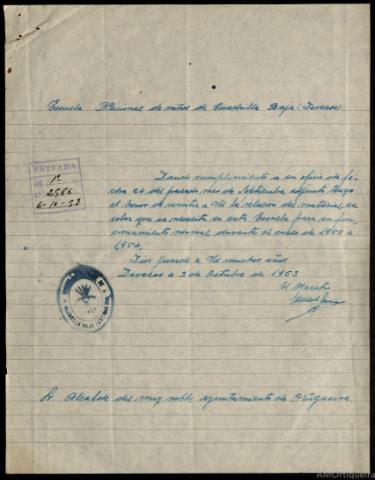 Escuela Nacional de niños de Cuadrilla Baja (Devesos)
ENTRADA
1ª
2586
6-10-53
Dando cumplimiento a su oficio de fe-
cha del pasado mes de Setiembre adjunto tengo
el honor de remitir a Vd la relación del material es-
colar que se necesita en esta Escuela para su fun-
cionamiento normal durante el curso de 1953 a
1954.
Dios guarde a Vd muchos años
Devesos a 3 de Octubre de 1953
El Maestro
Sr. Alcalde del muy noble ayuntamiento de Ortigueira.
AMOrtigueira